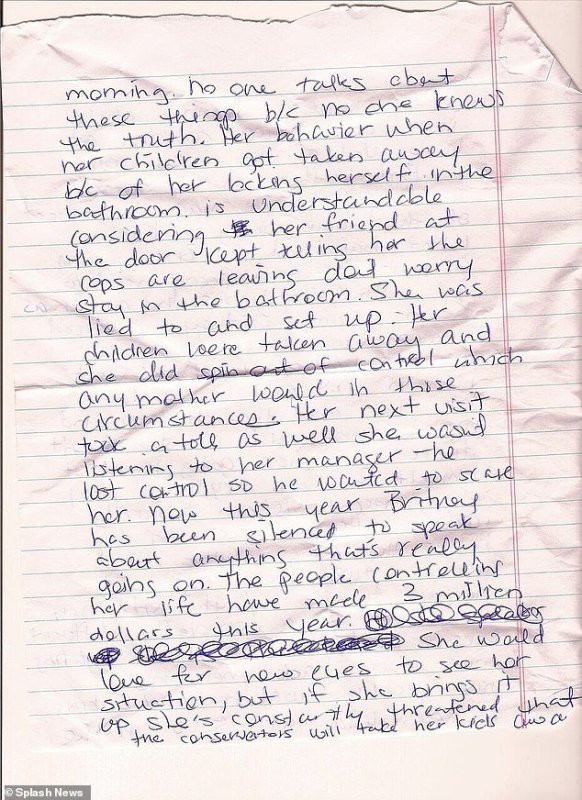 morning. no one talks about
these things b/c no one knows
the truth. Her behavior when
her children got taken away
b/c of her locking herself in the
bathroom. is understandable
considering her friend at
the door kept telling her the
cops are leaving don't worry
stay in the bathroom. She was
lied to and set up. Her
children were taken away and
she did spin out of control which
any mother would in those
circumstances. Her next visit
took a toll as well she wasn't
listening to her manager - he
lost control so he wanted to scare
her. Now this year Britney
has been silenced to speak
about anything that's really
going on. The people controlling
her life have made 3 million
dollars this year.
She would
love for new eyes to see her
situation, but if she brings it
up she's constantly threatened that
the conservators will take her kids awa
© Splash News